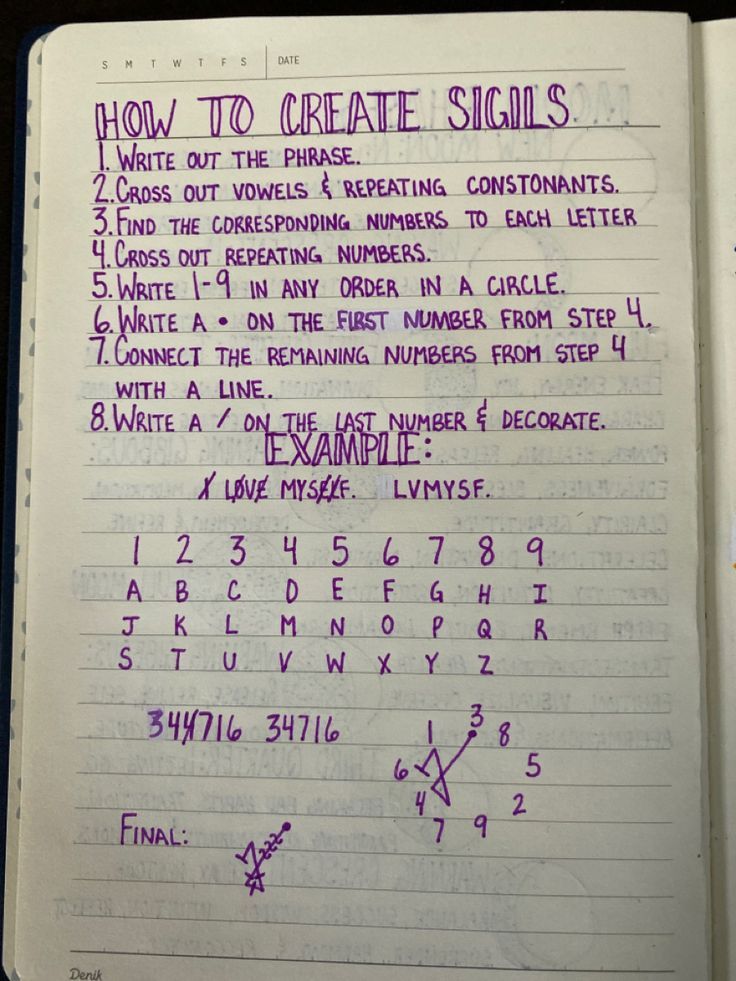 S M T W T F S DATE
HOW TO CREATE SIGILS.
1. WRITE OUT THE PHRASE.
2. CROSS OUT VOWELS & REPEATING CONSTONANTS.
3. FIND THE CORRESPONDING NUMBERS TO EACH LETTER
4. CROSS OUT REPEATING NUMBERS.
5. WRITE 1-9 IN ANY ORDER IN A CIRCLE.
6. WRITE A • ON THE FIRST NUMBER FROM STEP 4.
7. CONNECT THE REMAINING NUMBERS FROM STEP 4
WITH A LINE.
8. WRITE A / ON THE LAST NUMBER & DECORATE.
EXAMPLE:
I LOVE MYSELF. LVMYSF.
1 2 3 4 5 6 7 8 9
A B C D E F G H I
J K L M N O P Q R
S T U V W X Y Z
344716 34716
3
1 8
6 5
4 2
7 9
FINAL:
Denik